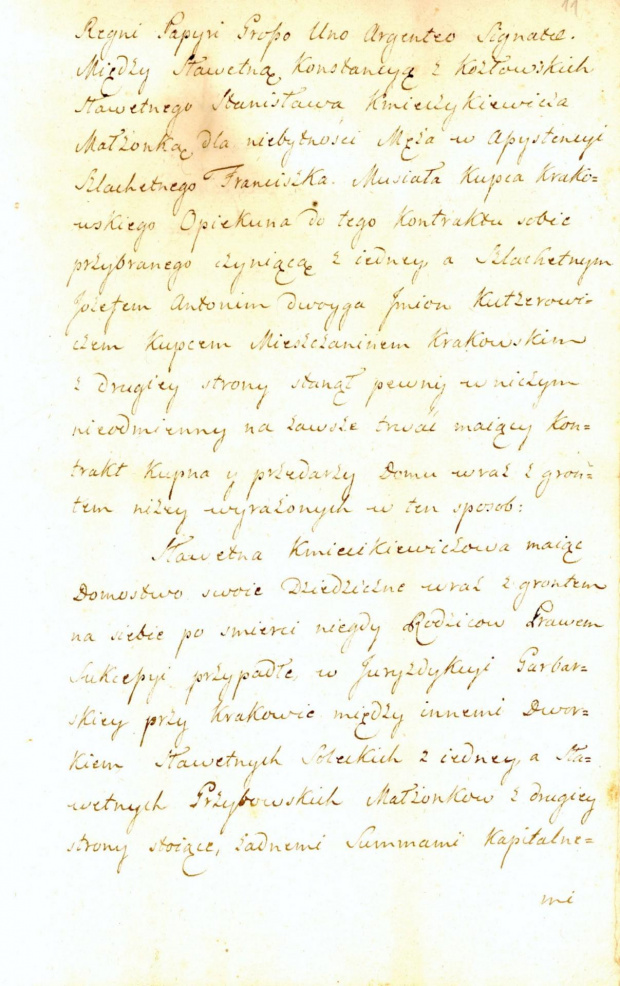 11
Regni Papyri Großo Uno Argenteo Signatæ.
Między Sławetną Konstancyą z Kozłowskich
Sławetnego Stanisława Kmieczykiewicza
Małżonką, dla niebytności Męża w Aßystencyi
Szlachetnego Franciszka Musiała Kupca Krako=
wskiego Opiekuna do tego Kontraktu sobie
przybranego czyniącą z iedney, a Szlachetnym
Jozefem Antonim dwoyga Jmion Kutzerowi=
czem Kupcem Mieszczaninem Krakowskim
z drugiey strony stanął pewny w niczym
nieodmienny na zawsze trwać maiący Kon=
trakt Kupna y przedarzy Domu wraz z gron=
tem niżey wyrażonych w ten sposob:
Sławetna Kmiecikiewiczowa maiąc
Domostwo swoie Dziedziczne wraz z grontem
na siebie po smierci niegdy Rodzicow Prawem
Sukceßyi przypadłe, w Juryzdykcyi Garbar=
skiey przy Krakowie między innemi Dwor=
kiem Sławetnych Soleckich z iedney, a Sła=
wetnych Przybowskich Małżonkow z drugiey
strony stoiące, żadnemi Summami Kapitalne=
mi